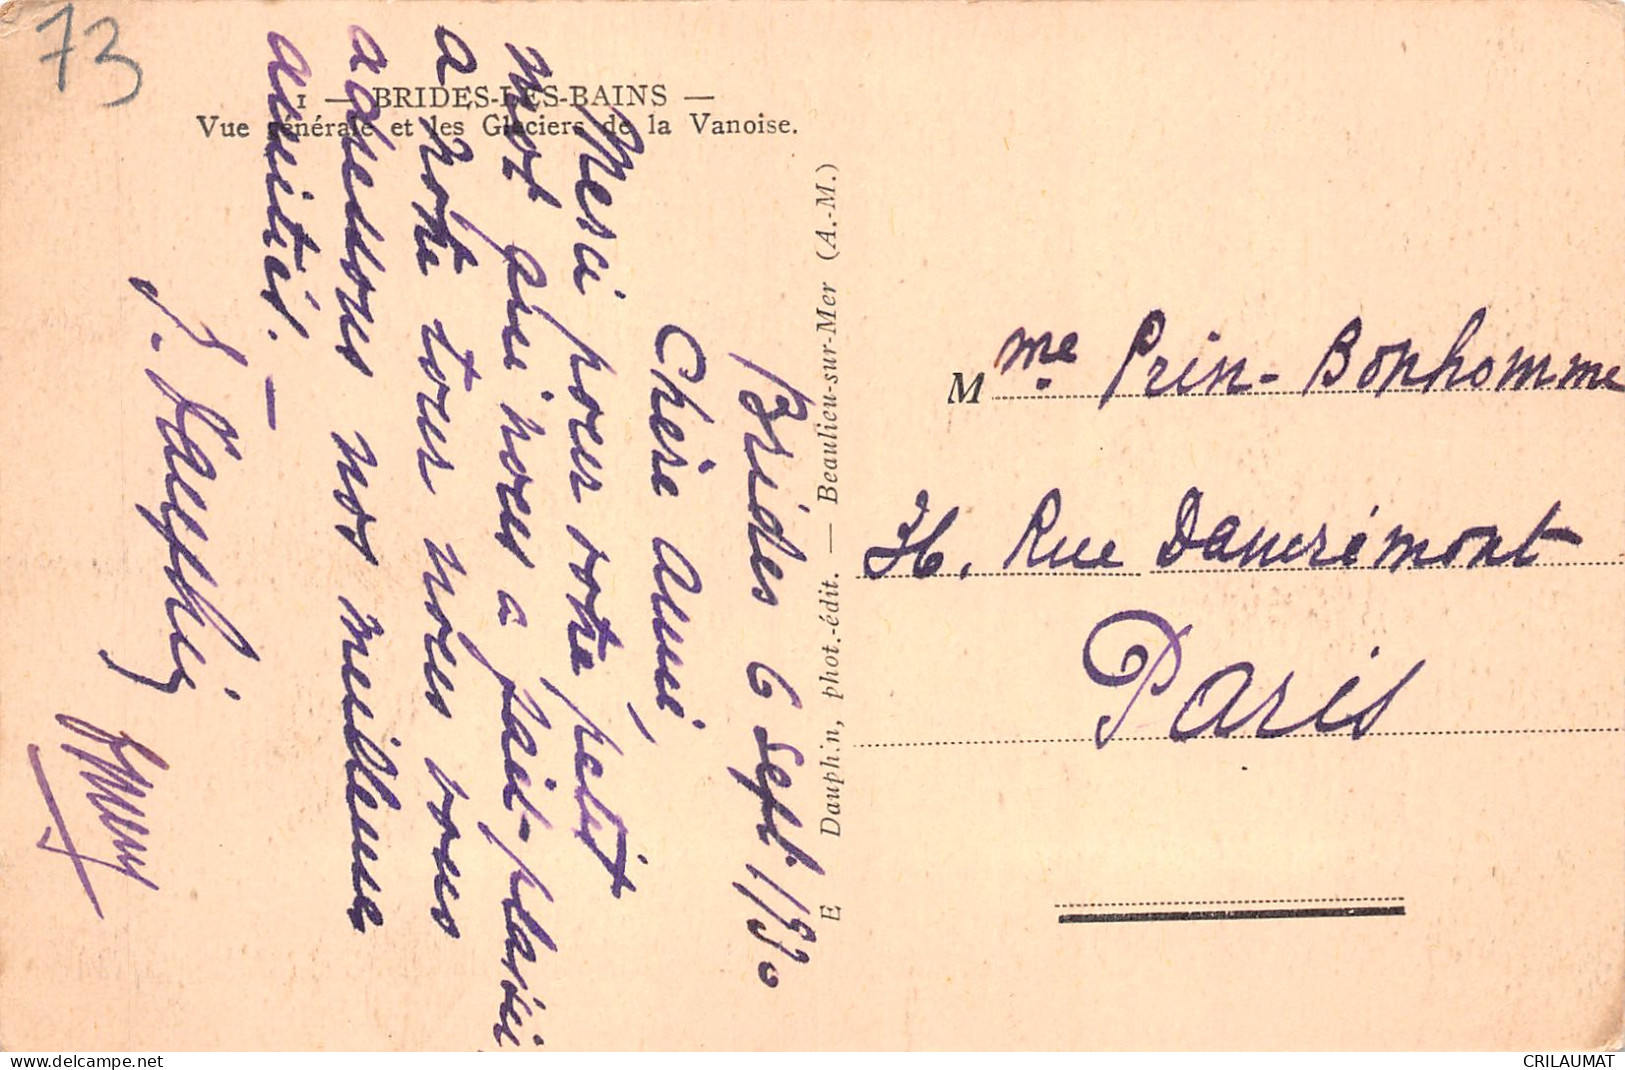 73
1 — BRIDES-LES-BAINS —
Vue générale et les Glaciers de la Vanoise.
Brides 6 Sept. 1930
Chère Amie,
Merci pour votre petit
mot qui nous a fait plaisir
a notre tour nous vous
adressons nos meilleures
amitiés. —
E Dauphin, phot.-édit. — Beaulieu-sur-Mer (A.-M.)
Mme Prin-Bonhomme
36, Rue Damrémont
Paris
www.delcampe.net
CRILAUMAT